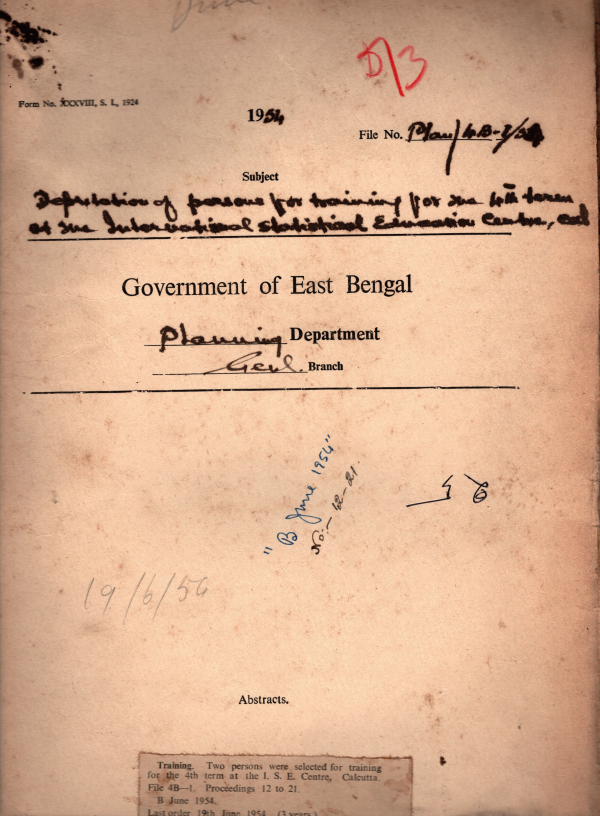 D/3
Form No. XXXVIII, S. L, 1924
1954
File No. Plan/4B-1/54
Subject
Deputation of persons for training for the 4th term
at the International Statistical Education Centre, Cal
Government of East Bengal
Planning Department
Genl. Branch
"B June 1954"
No:- 12-21.
19/6/54
Abstracts.
Training. Two persons were selected for training
for the 4th term at the I. S. E. Centre, Calcutta.
File 4B—1. Proceedings 12 to 21.
B June 1954.
Last order 19th June 1954. (3 years)